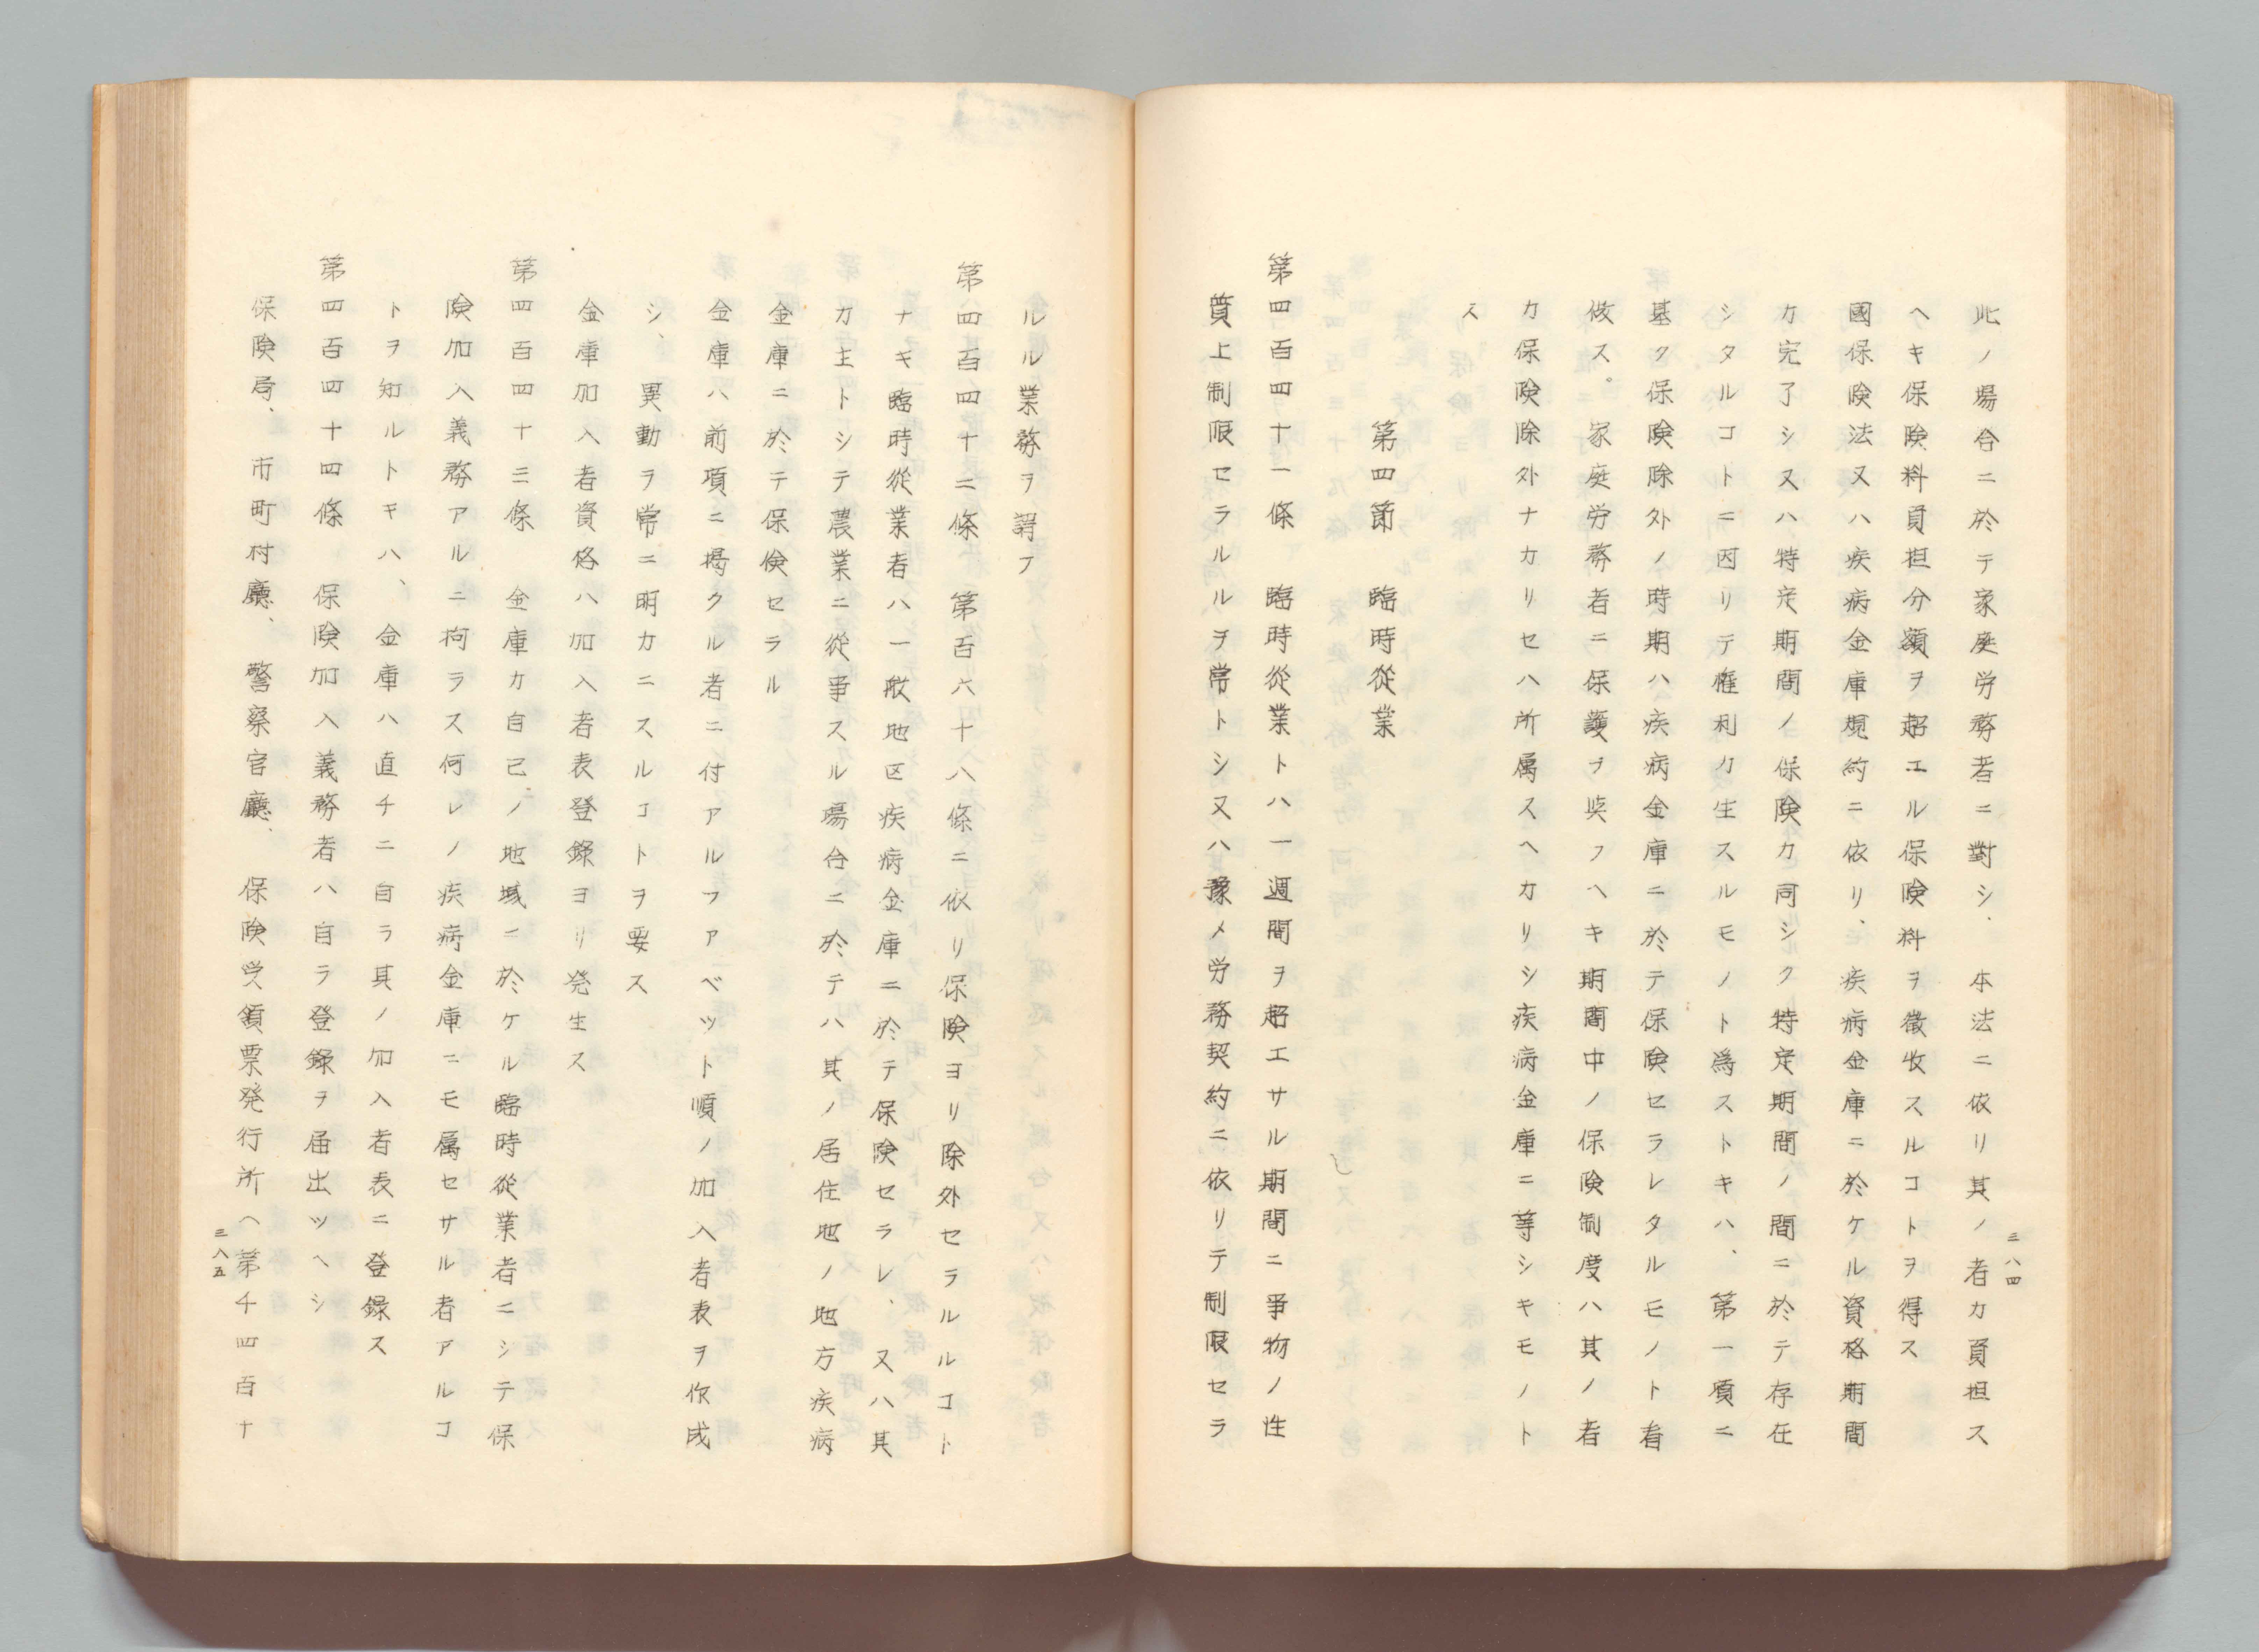 三八四
此ノ場合ニ於テ家庭労務者ニ對シ、本法ニ依リ其ノ者カ負担ス
ヘキ保険料負担分額ヲ超エル保険料ヲ徴收スルコトヲ得ス
國保険法又ハ疾病金庫規約ニ依リ、疾病金庫ニ於ケル資格期間
カ完了シ又ハ特定期間ノ保険カ同シク特定期間ノ間ニ於テ存在
シタルコトニ因リテ権利カ生スルモノト爲ストキハ、第一項ニ
基ク保険除外ノ時期ハ疾病金庫ニ於テ保険セラレタルモノト看
做ス。家庭労務者ニ保護ヲ与フヘキ期間中ノ保険制度ハ其ノ者
カ保険除外ナカリセハ所属スヘカリシ疾病金庫ニ等シキモノト
ス
第四節　臨時從業
第四百四十一條　臨時從業トハ一週間ヲ超エサル期間ニ事物ノ性
質上制限セラルルヲ常トシ又ハ豫メ労務契約ニ依リテ制限セラ
ルル業務ヲ謂フ
第四百四十二條　第百六十八條ニ依リ保険ヨリ除外セラルルコト
ナキ臨時從業者ハ一般地区疾病金庫ニ於テ保険セラレ、又ハ其
カ主トシテ農業ニ從事スル場合ニ於テハ其ノ居住地ノ地方疾病
金庫ニ於テ保険セラル
金庫ハ前項ニ掲クル者ニ付アルファベット順ノ加入者表ヲ作成
シ、異動ヲ常ニ明カニスルコトヲ要ス
金庫加入者資格ハ加入者表登録ヨリ発生ス
第四百四十三條　金庫カ自己ノ地域ニ於ケル臨時從業者ニシテ保
険加入義務アルニ拘ラス何レノ疾病金庫ニモ属セサル者アルコ
トヲ知ルトキハ、金庫ハ直チニ自ラ其ノ加入者表ニ登録ス
第四百四十四條　保険加入義務者ハ自ラ登録ヲ届出ツヘシ
保険局、市町村廳、警察官廳、保険受領票発行所ヘ第千四百十
三八五